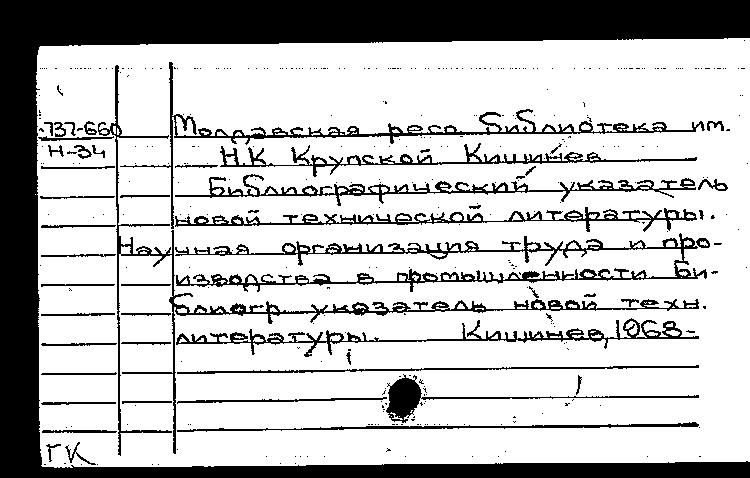 -737-660
Молдавская респ. библиотека им.
Н-34
Н.К. Крупской Кишинев
Библиографический указатель
новой технической литературы.
Научная организация труда и про-
изводства в промышленности. Би-
блиогр. указатель новой техн.
литературы. Кишинев, 1968-
ГК